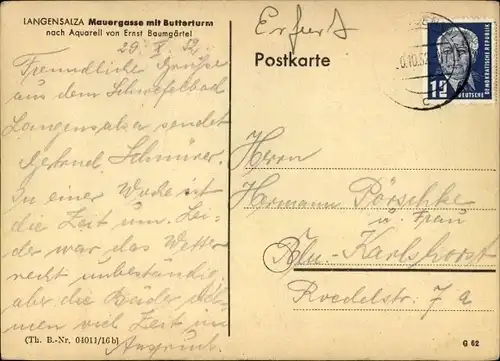 LANGENSALZA Mauergasse mit Butterturm
nach Aquarell von Ernst Baumgärtel
29. X. 52.
Freundliche Grüße
aus dem Schwefelbad
Langensalza sendet
Gertrud Schnürer.
In einer Woche ist
die Zeit um. Lei-
der war das Wetter
recht unbeständig,
aber die Bäder neh-
men viel Zeit in
Anspruch.
(Th. B.-Nr. 04011/16 b)
Erfurt
Postkarte
12
DEUTSCHE
DEMOKRATISCHE REPUBLIK
Herrn
Hermann Pörschke
u. Frau
Bln.-Karlshorst
Roedelstr. 7a
G 62